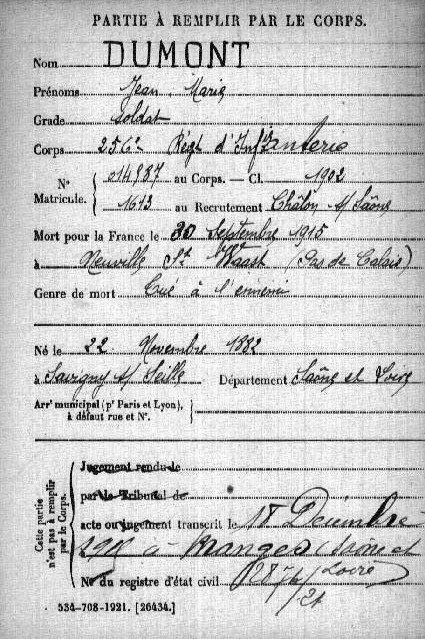 PARTIE À REMPLIR PAR LE CORPS.
Nom DUMONT
Prénoms Jean Marie
Grade Soldat
Corps 256e Régt d'Infanterie
N° Matricule. { 014937 au Corps. — Cl. 1902
1613 au Recrutement Châlon s/ Saône
Mort pour la France le 30 Septembre 1915
à Neuville St Waast (Pas de Calais)
Genre de mort Tué à l'ennemi
Né le 22 Novembre 1882
à Savigny s/ Seille Département Saône et Loire
Arrt municipal (pr Paris et Lyon),
à défaut rue et N°.
Cette partie
n'est pas à remplir
par le Corps.
Jugement rendu le
par le Tribunal de
acte ou jugement transcrit le 18 Décembre
à Branges (Saône et
N° du registre d'état civil Loire)
534-708-1921. [26434.]